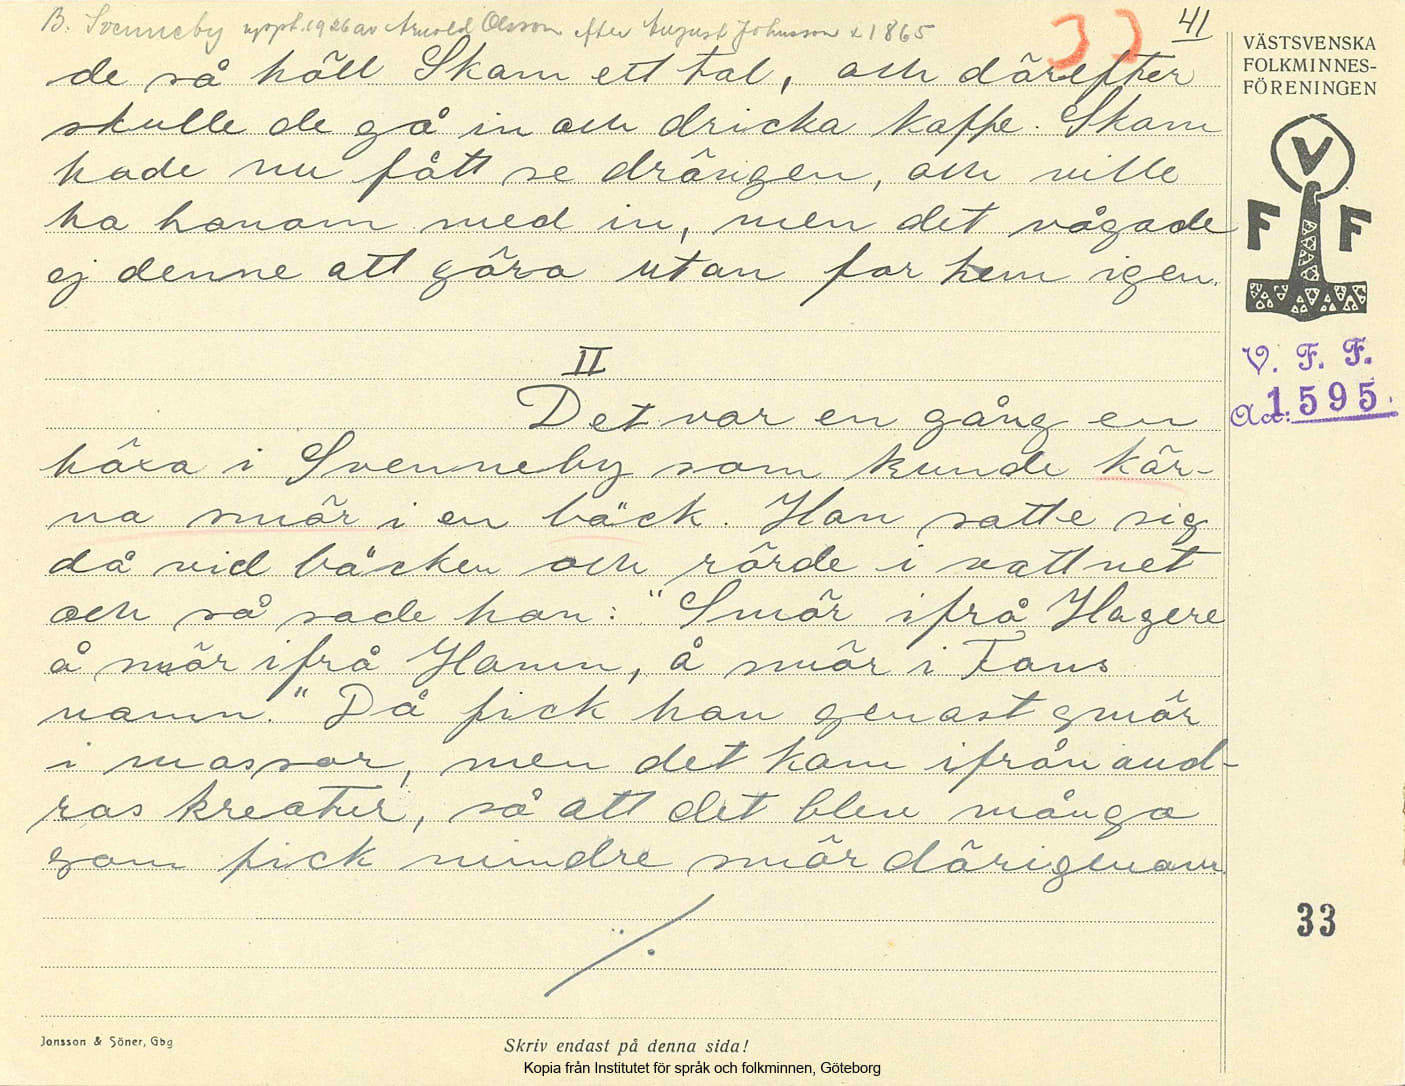 B. Svenneby uppt. 1926 av Arnold Olsson efter August Johnsson f. 1865
33
41
de så höll Skam ett tal, och därefter
skulle de gå in och dricka kaffe. Skam
hade nu fått se drängen, och ville
ha honom med in, men det vågade
ej denne att göra utan for hem igen.
II
Det var en gång en
häxa i Svenneby som kunde kär-
na smör i en bäck. Han satte sig
då vid bäcken och rörde i vattnet
och så sade han: "Smör ifrå Hagere
å smör ifrå Hamn, å smör i Fans
namn." Då fick han genast smör
i massor, men det kom ifrån and-
ras kreatur, så att det blev många
som fick mindre smör därigenom.
./.
VÄSTSVENSKA
FOLKMINNES-
FÖRENINGEN
V
F F
V. F. F.
Acc: 1595.
33
Jonsson & Söner, Gbg
Skriv endast på denna sida!
Kopia från Institutet för språk och folkminnen, Göteborg